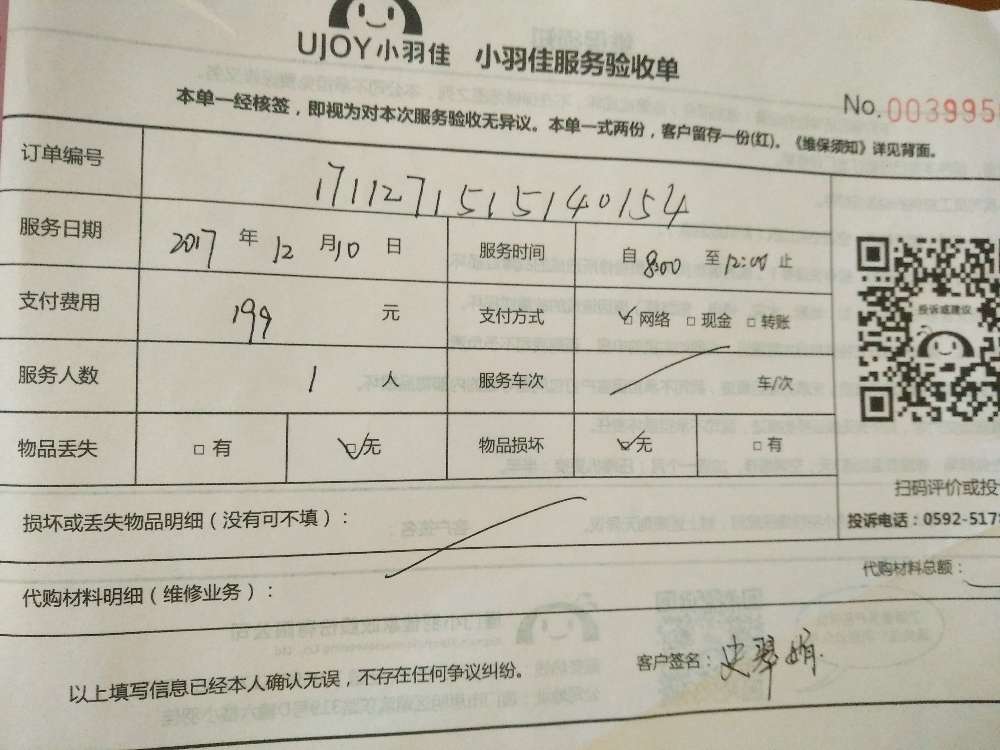 UJOY小羽佳 小羽佳服务验收单
No. 003995
本单一经核签，即视为对本次服务验收无异议。本单一式两份，客户留存一份(红)。《维保须知》详见背面。
订单编号 1711271515140154
服务日期 2017 年 12 月 10 日 服务时间 自 8:00 至 12:00 止
支付费用 199 元 支付方式 ☑ 网络 □ 现金 □ 转账
服务人数 1 人 服务车次 车/次
物品丢失 □ 有 ☑无 物品损坏 ☑无 □ 有
投诉或建议
扫码评价或投
投诉电话：0592-5178
损坏或丢失物品明细（没有可不填）：
代购材料明细（维修业务）：
代购材料总额：
以上填写信息已经本人确认无误，不存在任何争议纠纷。
客户签名：史翠娟